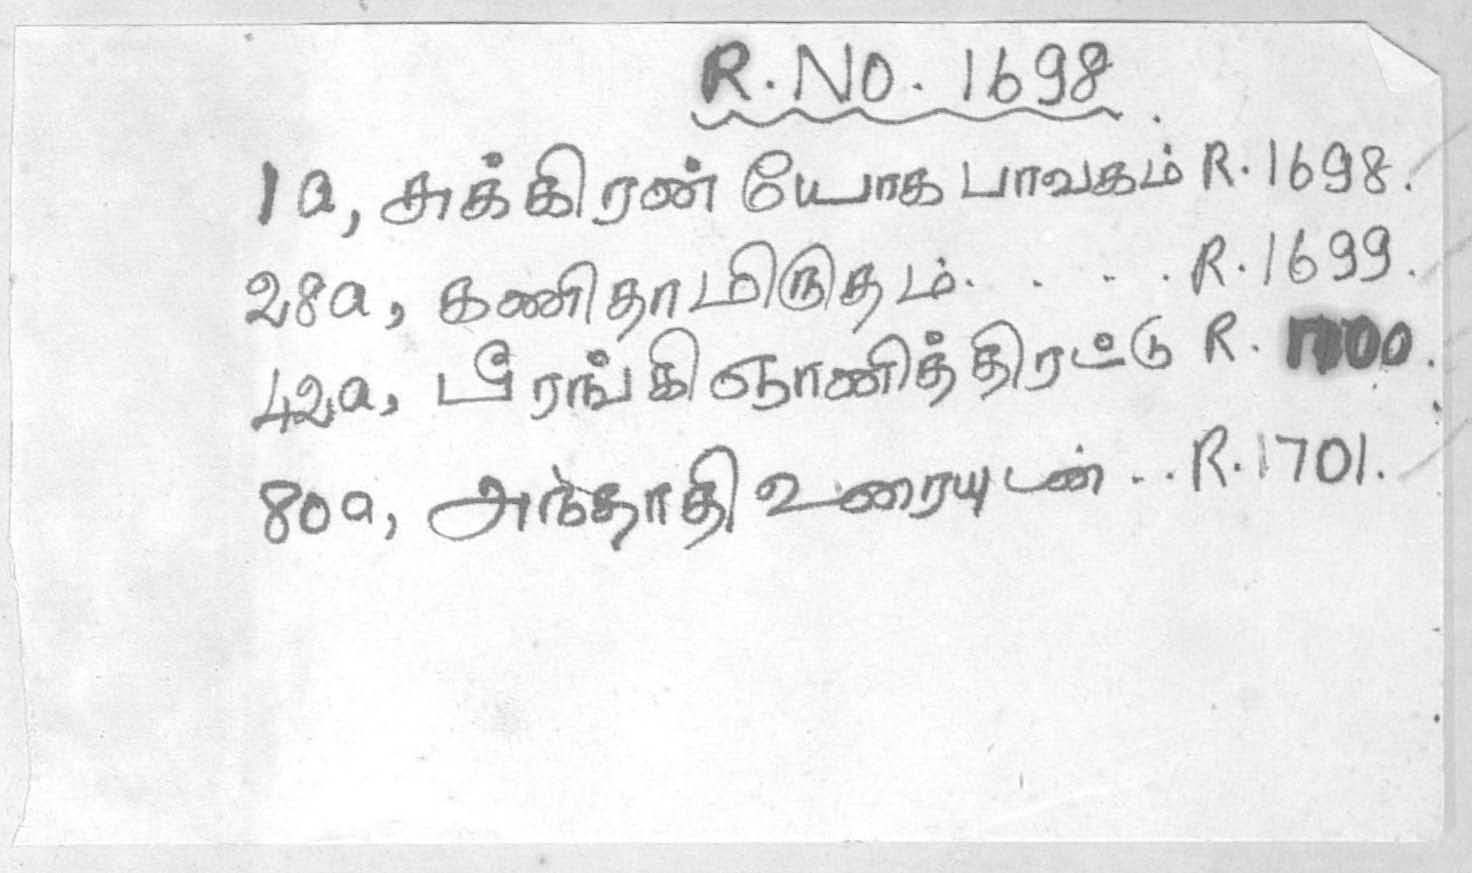 R.NO. 1698.
1a, சுக்கிரண் யோக பாவகம் R.1698.
28a, கணிதாமிருதம். . . . . R.1699.
42a, பீரங்கி ஞானித்திரட்டு R. 1700.
80a, அந்தாதி உரையுடன் . . R.1701.